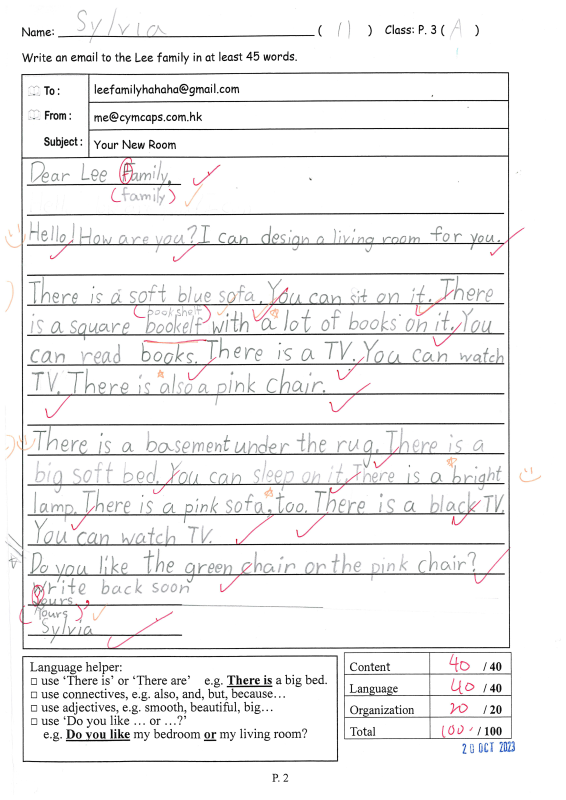 Name: Sylvia ( 11 ) Class: P. 3 ( A )
Write an email to the Lee family in at least 45 words.
To : leefamilyhahaha@gmail.com
From : me@cymcaps.com.hk
Subject : Your New Room
Dear Lee Family,
(family)
Hello! How are you? I can design a living room for you.
There is a soft blue sofa. You can sit on it. There
(bookshelf)
is a square bookelf with a lot of books on it. You
can read books. There is a TV. You can watch
TV. There is also a pink chair.
There is a basement under the rug. There is a
big soft bed. You can sleep on it. There is a bright
lamp. There is a pink sofa, too. There is a black TV.
You can watch TV.
Do you like the green chair or the pink chair?
Write back soon
Yours,
(Yours)
Sylvia
Language helper:
□ use 'There is' or 'There are' e.g. There is a big bed.
□ use connectives, e.g. also, and, but, because…
□ use adjectives, e.g. smooth, beautiful, big…
□ use 'Do you like … or …?'
e.g. Do you like my bedroom or my living room?
Content 40 / 40
Language 40 / 40
Organization 20 / 20
Total 100 / 100
20 OCT 2023
P. 2